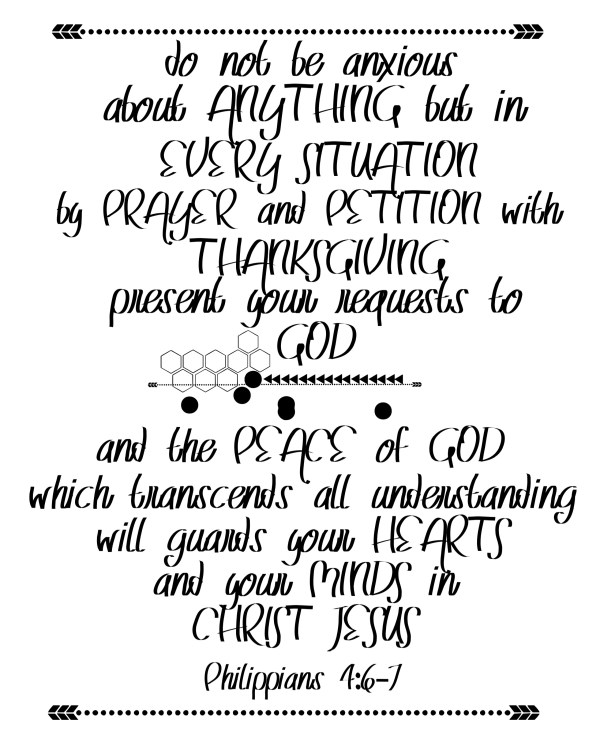 do not be anxious
about ANYTHING but in
EVERY SITUATION
by PRAYER and PETITION with
THANKSGIVING
present your requests to
GOD
and the PEACE of GOD
which transcends all understanding
will guards your HEARTS
and your MINDS in
CHRIST JESUS
Philippians 4:6-7